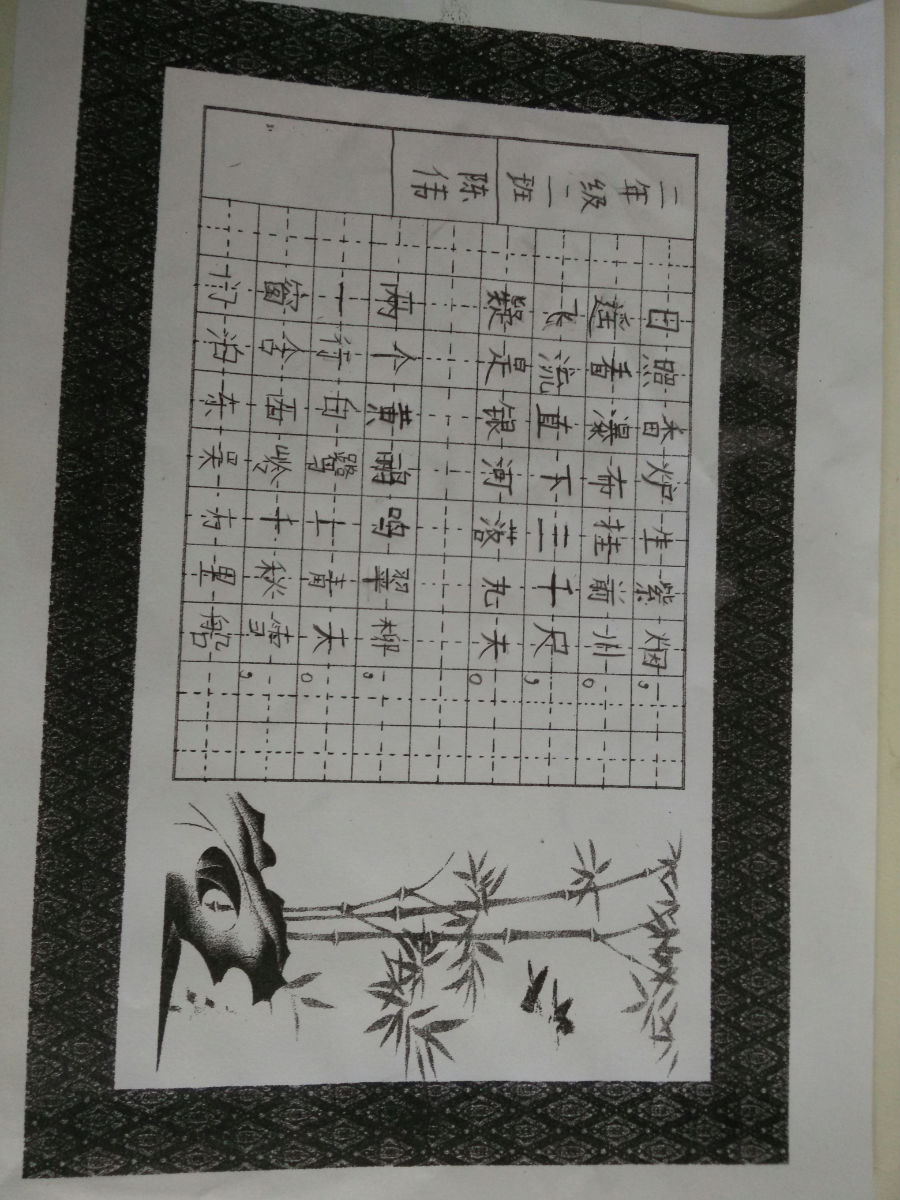 二年级二班
陈伟
日照香炉生紫烟，
遥看瀑布挂前川。
飞流直下三千尺，
疑是银河落九天。
两个黄鹂鸣翠柳，
一行白鹭上青天。
窗含西岭千秋雪，
门泊东吴村里船